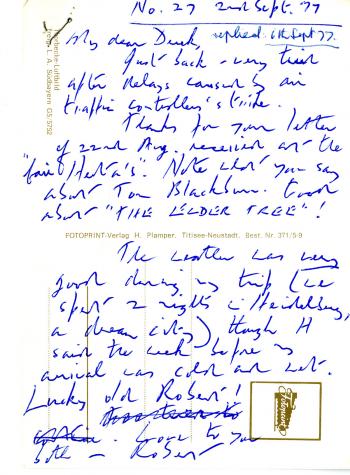 No. 27 2nd Sept. 77
My dear Derek, replied 6th Sept 77.
Just back - very tired
after delays caused by air
traffic controllers strike.
Thanks for your letter
of 22nd Aug. received at the
"Herta's". Note what you say
about Tom Blackburn. Good
about "THE ELDER TREE"!
FOTOPRINT-Verlag H. Plamper. Titisee-Neustadt. Best. Nr. 371/5-9
The weather was very
good during my trip (we
spent 2 nights in Heidelberg,
a dream city) though H
said the week before my
arrival was cold and wet.
Lucky old Robert!
Love to you
both - Robert
Fotoprint
Luftbild
freig. L. A. Südbayern GS 5752